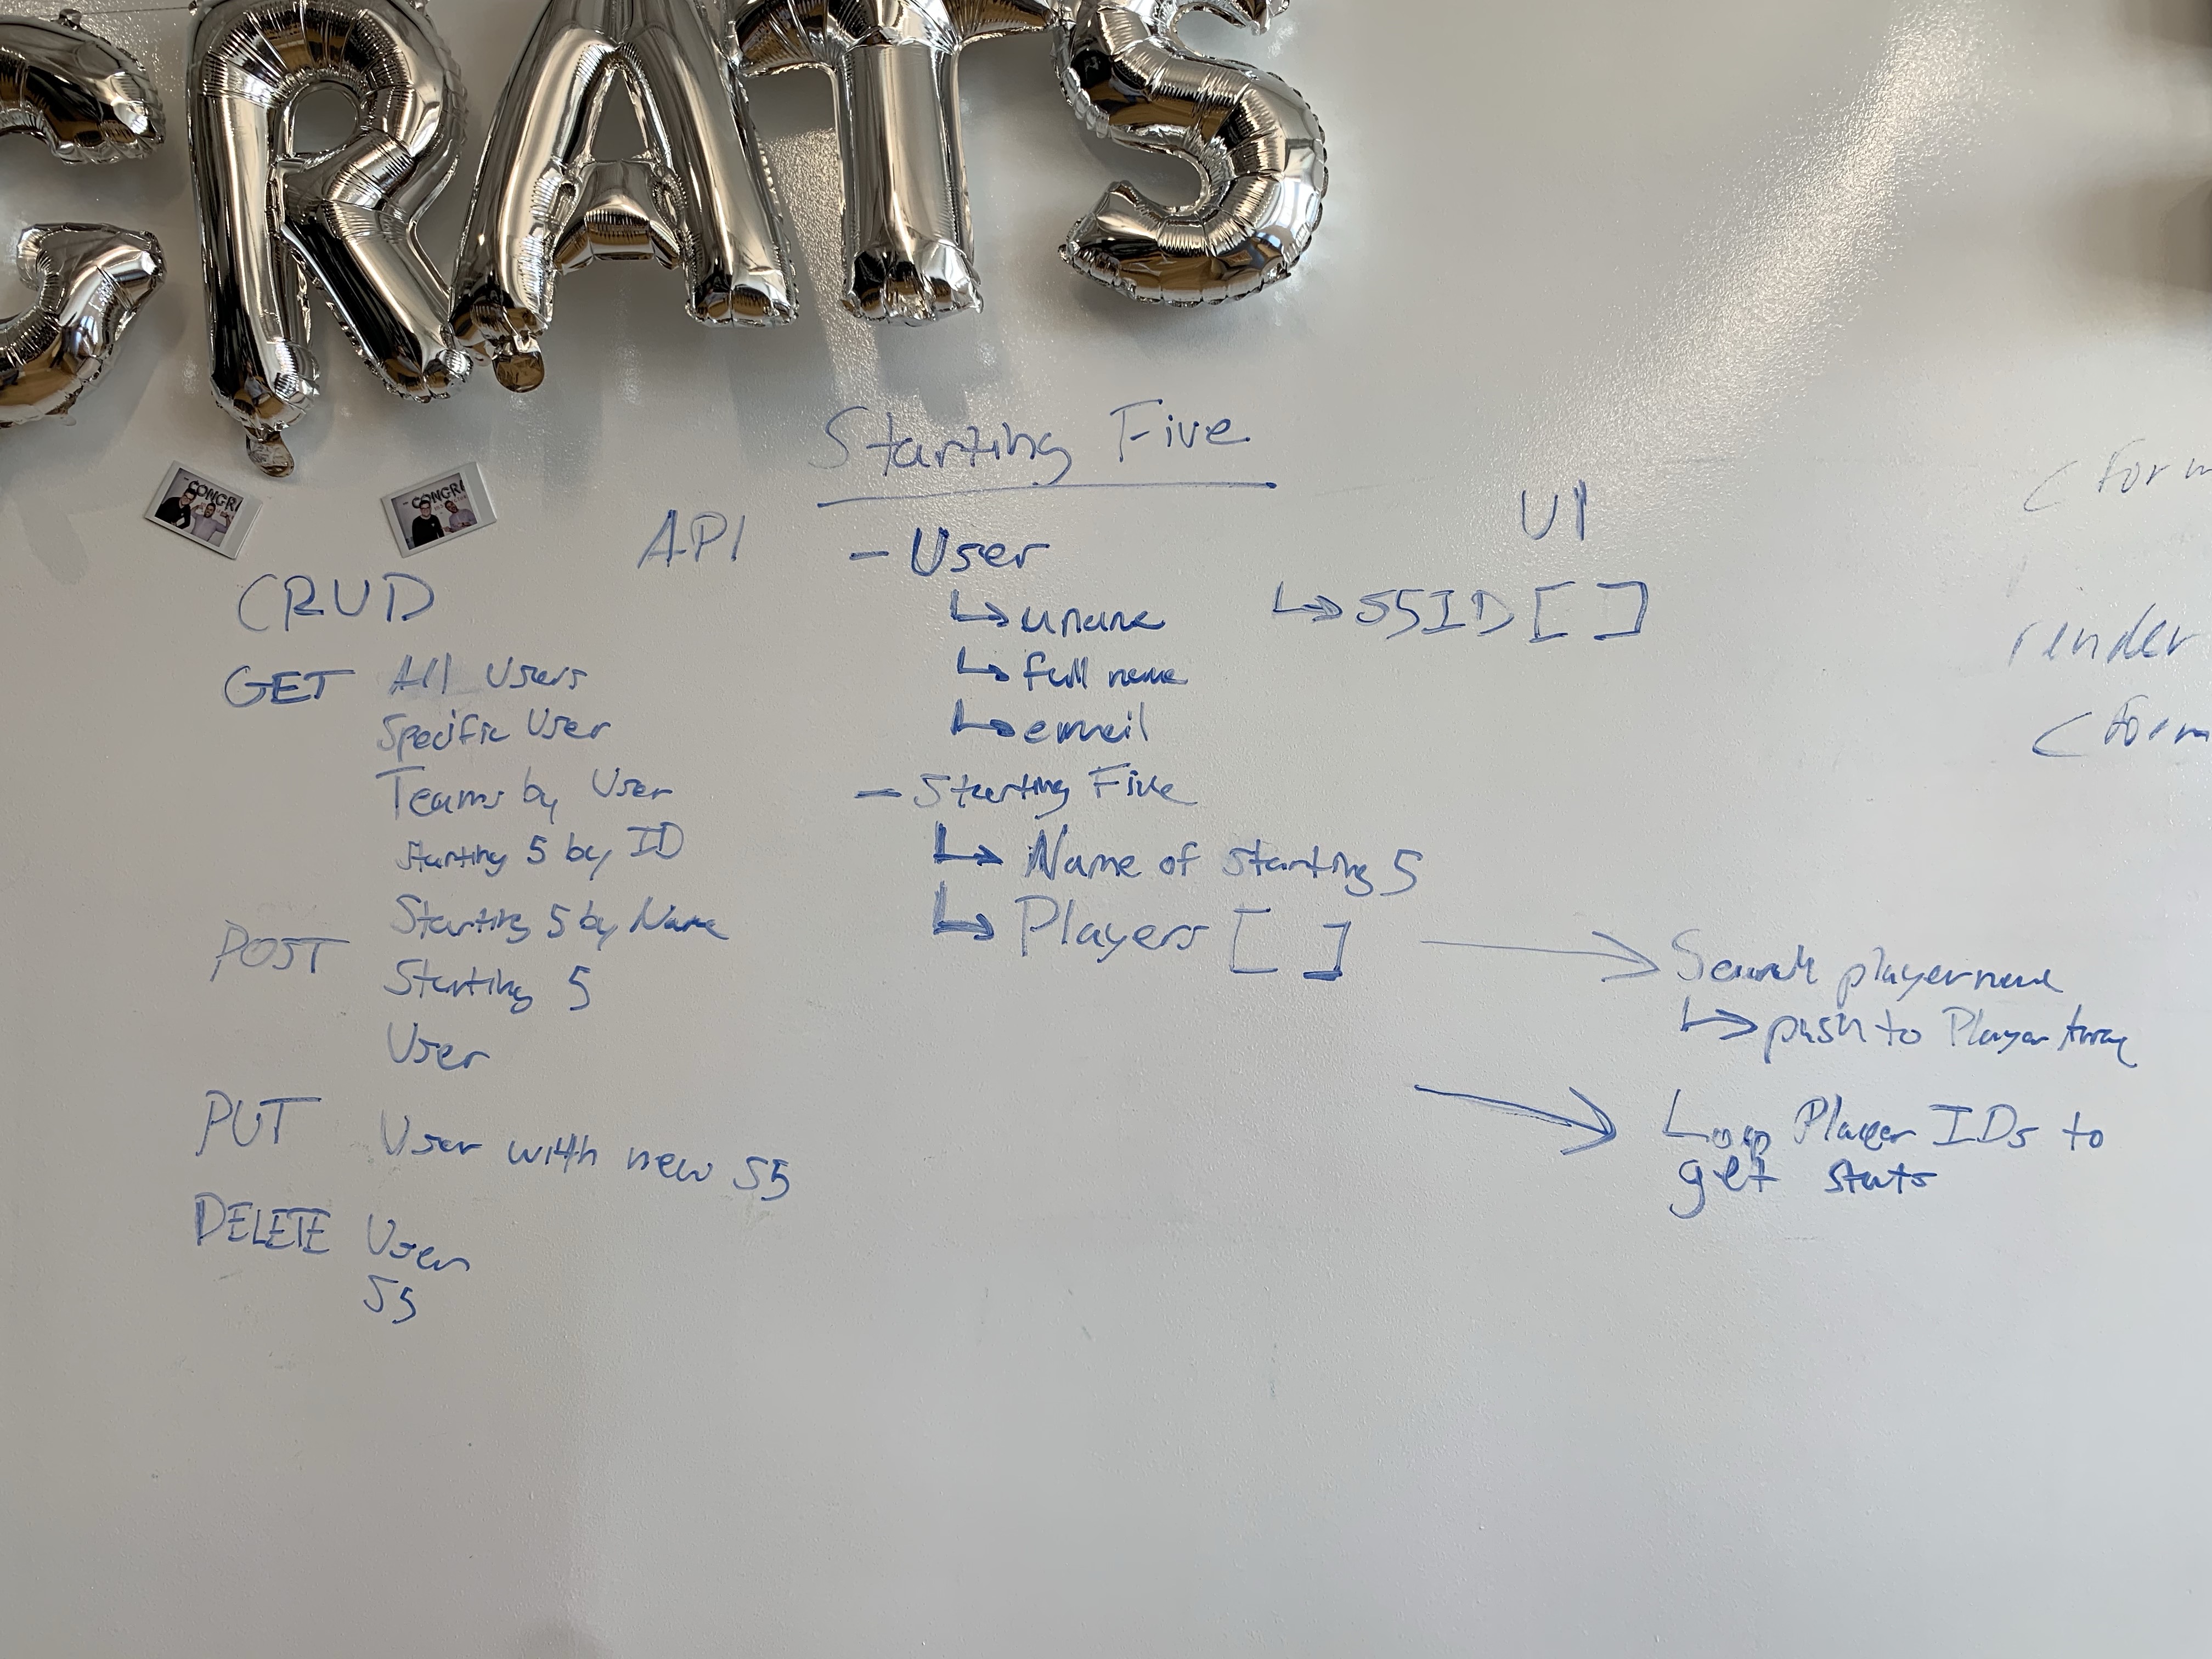 GRATS
CONGRA
CONGRA
Starting Five
API
UI
CRUD
GET All Users
Specific User
Teams by User
Starting 5 by ID
Starting 5 by Name
POST Starting 5
User
PUT User with new S5
DELETE User
S5
– User
↳ uname
↳ full name
↳ email
↳ S5ID [ ]
– Starting Five
↳ Name of starting 5
↳ Players [ ]
→ Search player name
↳ push to Player Array
→ Loop Player IDs to
get stats
< form
render
< form